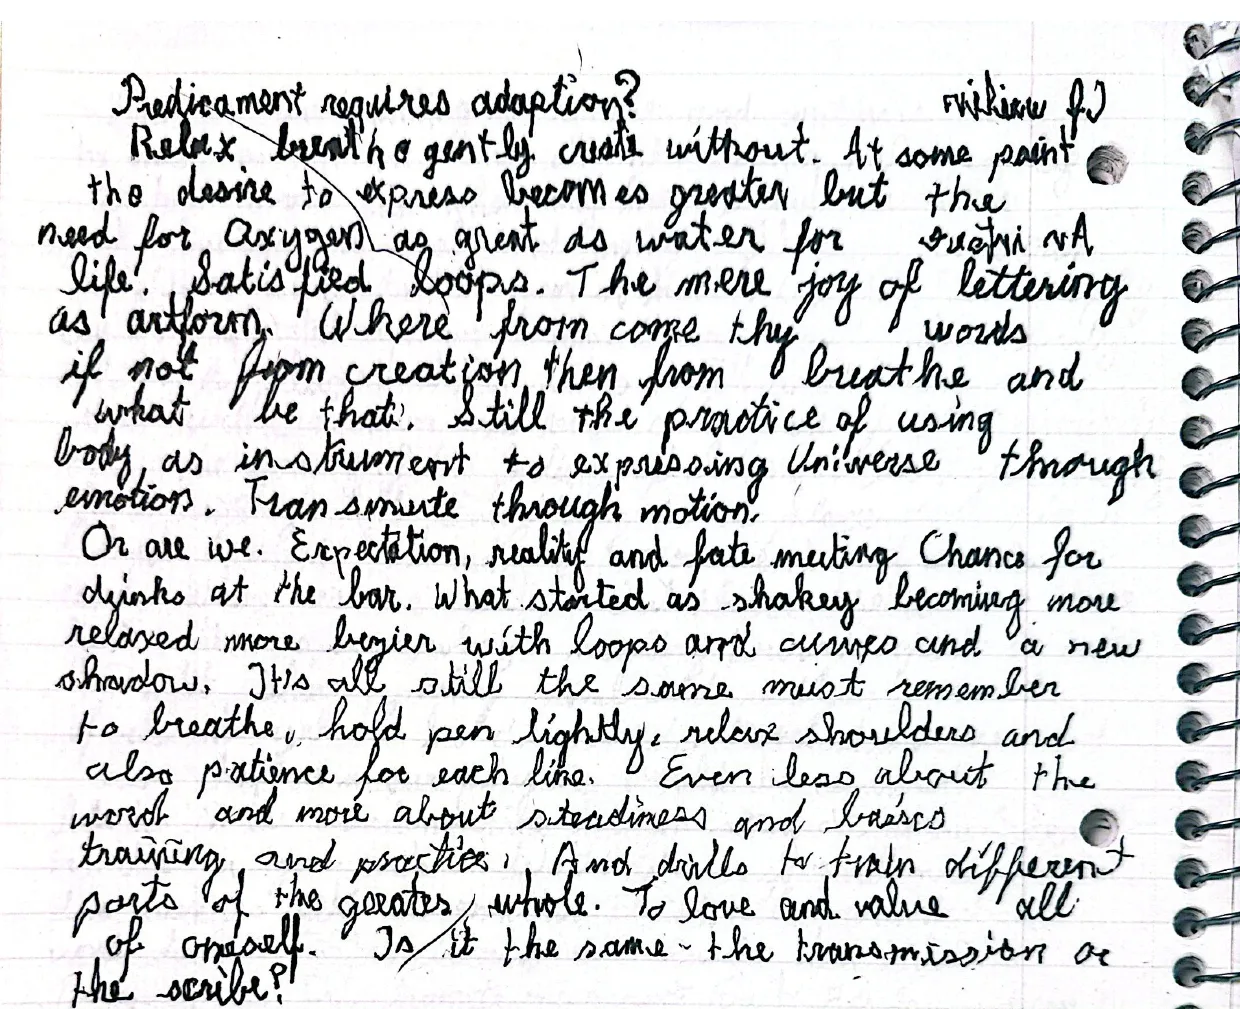 Predicament requires adaption?
Relax breathe gently create without. At some point
the desire to express becomes greater but the
need for Oxygen as great as water for
life. Satisfied loops. The mere joy of lettering
as artform. Where from come thy words
if not from creation then from breathe and
what be that. Still the practice of using
body, as instrument to expressing Universe through
emotion. Transmute through motion.
Or are we. Expectation, reality and fate meeting Chance for
drinks at the bar. What started as shakey becoming more
relaxed more bezier with loops and curves and a new
shadow. It's all still the same must remember
to breathe, hold pen lightly, relax shoulders and
also patience for each line. Even less about the
word and more about steadiness and
training and practice. And drills to train different
parts of the whole. To love and value all
of oneself. Is it the same - the transmission or
the scribe?